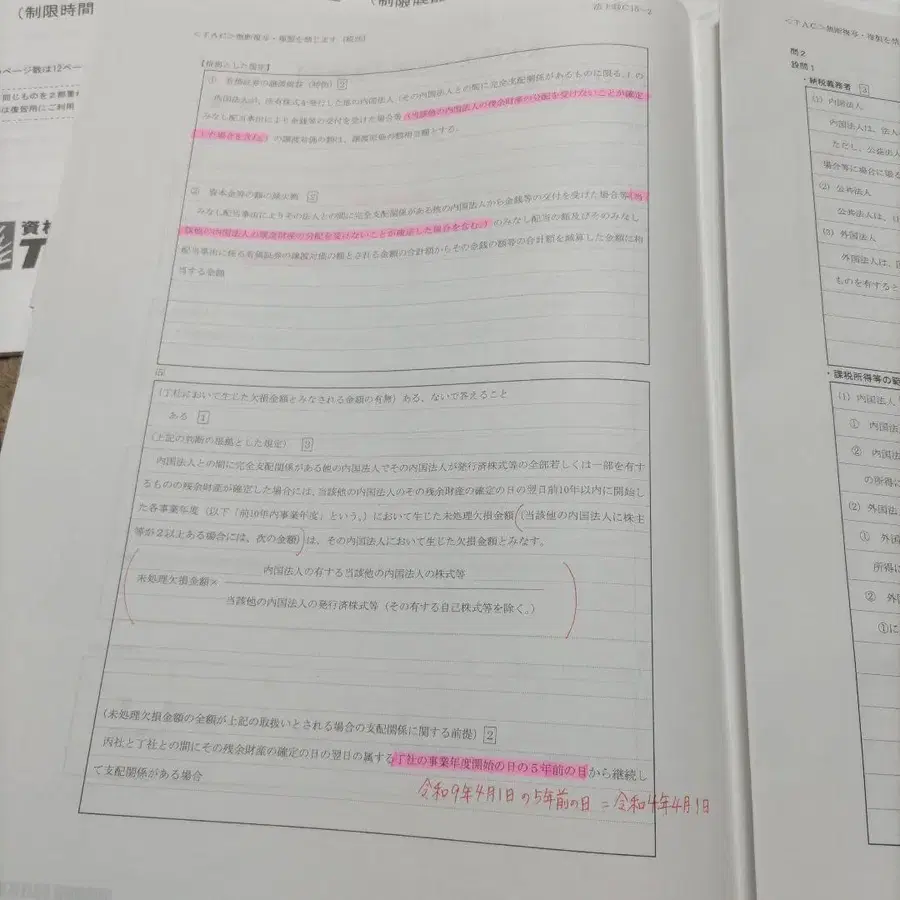 (制限時間
ページ数は12ペー
同じものを2部差
は復習用にご利用
資格
T
<TAC>無断複写・複製を禁じます(税法)
法上級C16-2
【根拠とした規定】
① 有価証券の譲渡損益(特例) 3
内国法人が、所有株式を発行した他の内国法人(その内国法人との間に完全支配関係があるものに限る。)の
みなし配当事由により金銭等の交付を受けた場合等(当該他の内国法人の残余財産の分配を受けないことが確定
した場合を含む。)の譲渡対価の額は、譲渡原価の額相当額とする。
② 資本金等の額の減少額 2
みなし配当事由によりその法人との間に完全支配関係がある他の内国法人から金銭等の交付を受けた場合等(当
該他の内国法人の残余財産の分配を受けないことが確定した場合を含む。)のみなし配当の額及びそのみなし
配当事由に係る有価証券の譲渡対価の額とされる金額の合計額からその金銭の額等の合計額を減算した金額に相
当する金額
(丁社において生じた欠損金額とみなされる金額の有無)ある、ないで答えること
ある 1
(上記の判断の根拠とした規定) 3
内国法人との間に完全支配関係がある他の内国法人でその内国法人が発行済株式等の全部若しくは一部を有す
るものの残余財産が確定した場合には、当該他の内国法人のその残余財産の確定の日の翌日前10年以内に開始し
た各事業年度(以下「前10年内事業年度」という。)において生じた未処理欠損金額(当該他の内国法人に株主
等が2以上ある場合には、次の金額)は、その内国法人において生じた欠損金額とみなす。
未処理欠損金額×
内国法人の有する当該他の内国法人の株式等
当該他の内国法人の発行済株式等(その有する自己株式等を除く。)
(未処理欠損金額の全額が上記の取扱いとされる場合の支配関係に関する前提) 2
丙社と丁社との間にその残余財産の確定の日の翌日の属する丁社の事業年度開始の日の5年前の日から継続し
て支配関係がある場合
令和9年4月1日の5年前の日=令和4年4月1日
<TAC>無断複写・複製を禁
問2
設問1
・納税義務者 3
(1) 内国法人
内国法人は、法人
ただし、公益法人
(2) 公共法人
公共法人は、(
(3) 外国法人
外国法人は、国
ものを有すると
・課税所得等の範
(1) 内国法人
① 内国法
② 内国法
の所得に
(2) 外国法
① 外国
所得に
② 外国
①に